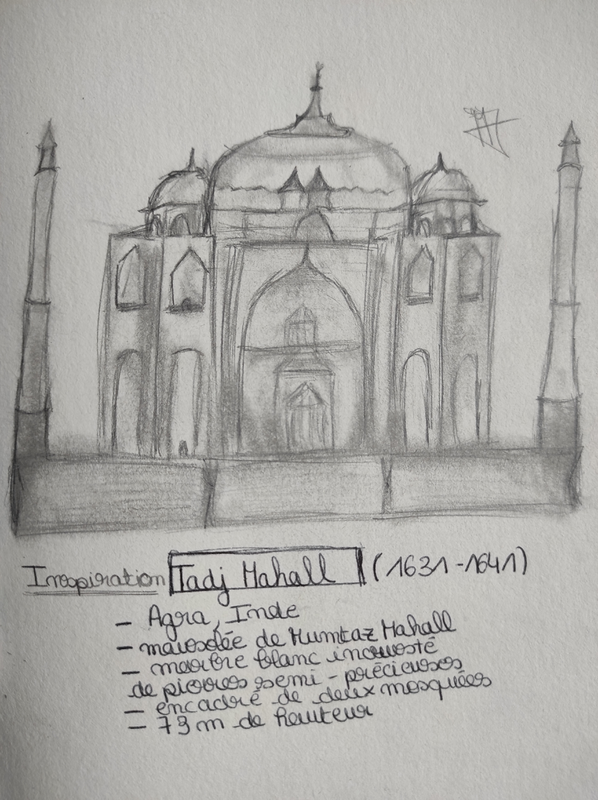 Inspiration Tadj Mahall (1631-1641)
- Agra, Inde
- mausolée de Mumtaz Mahall
- marbre blanc incrusté
de pierres semi-précieuses
- encadré de deux mosquées
- 73 m de hauteur